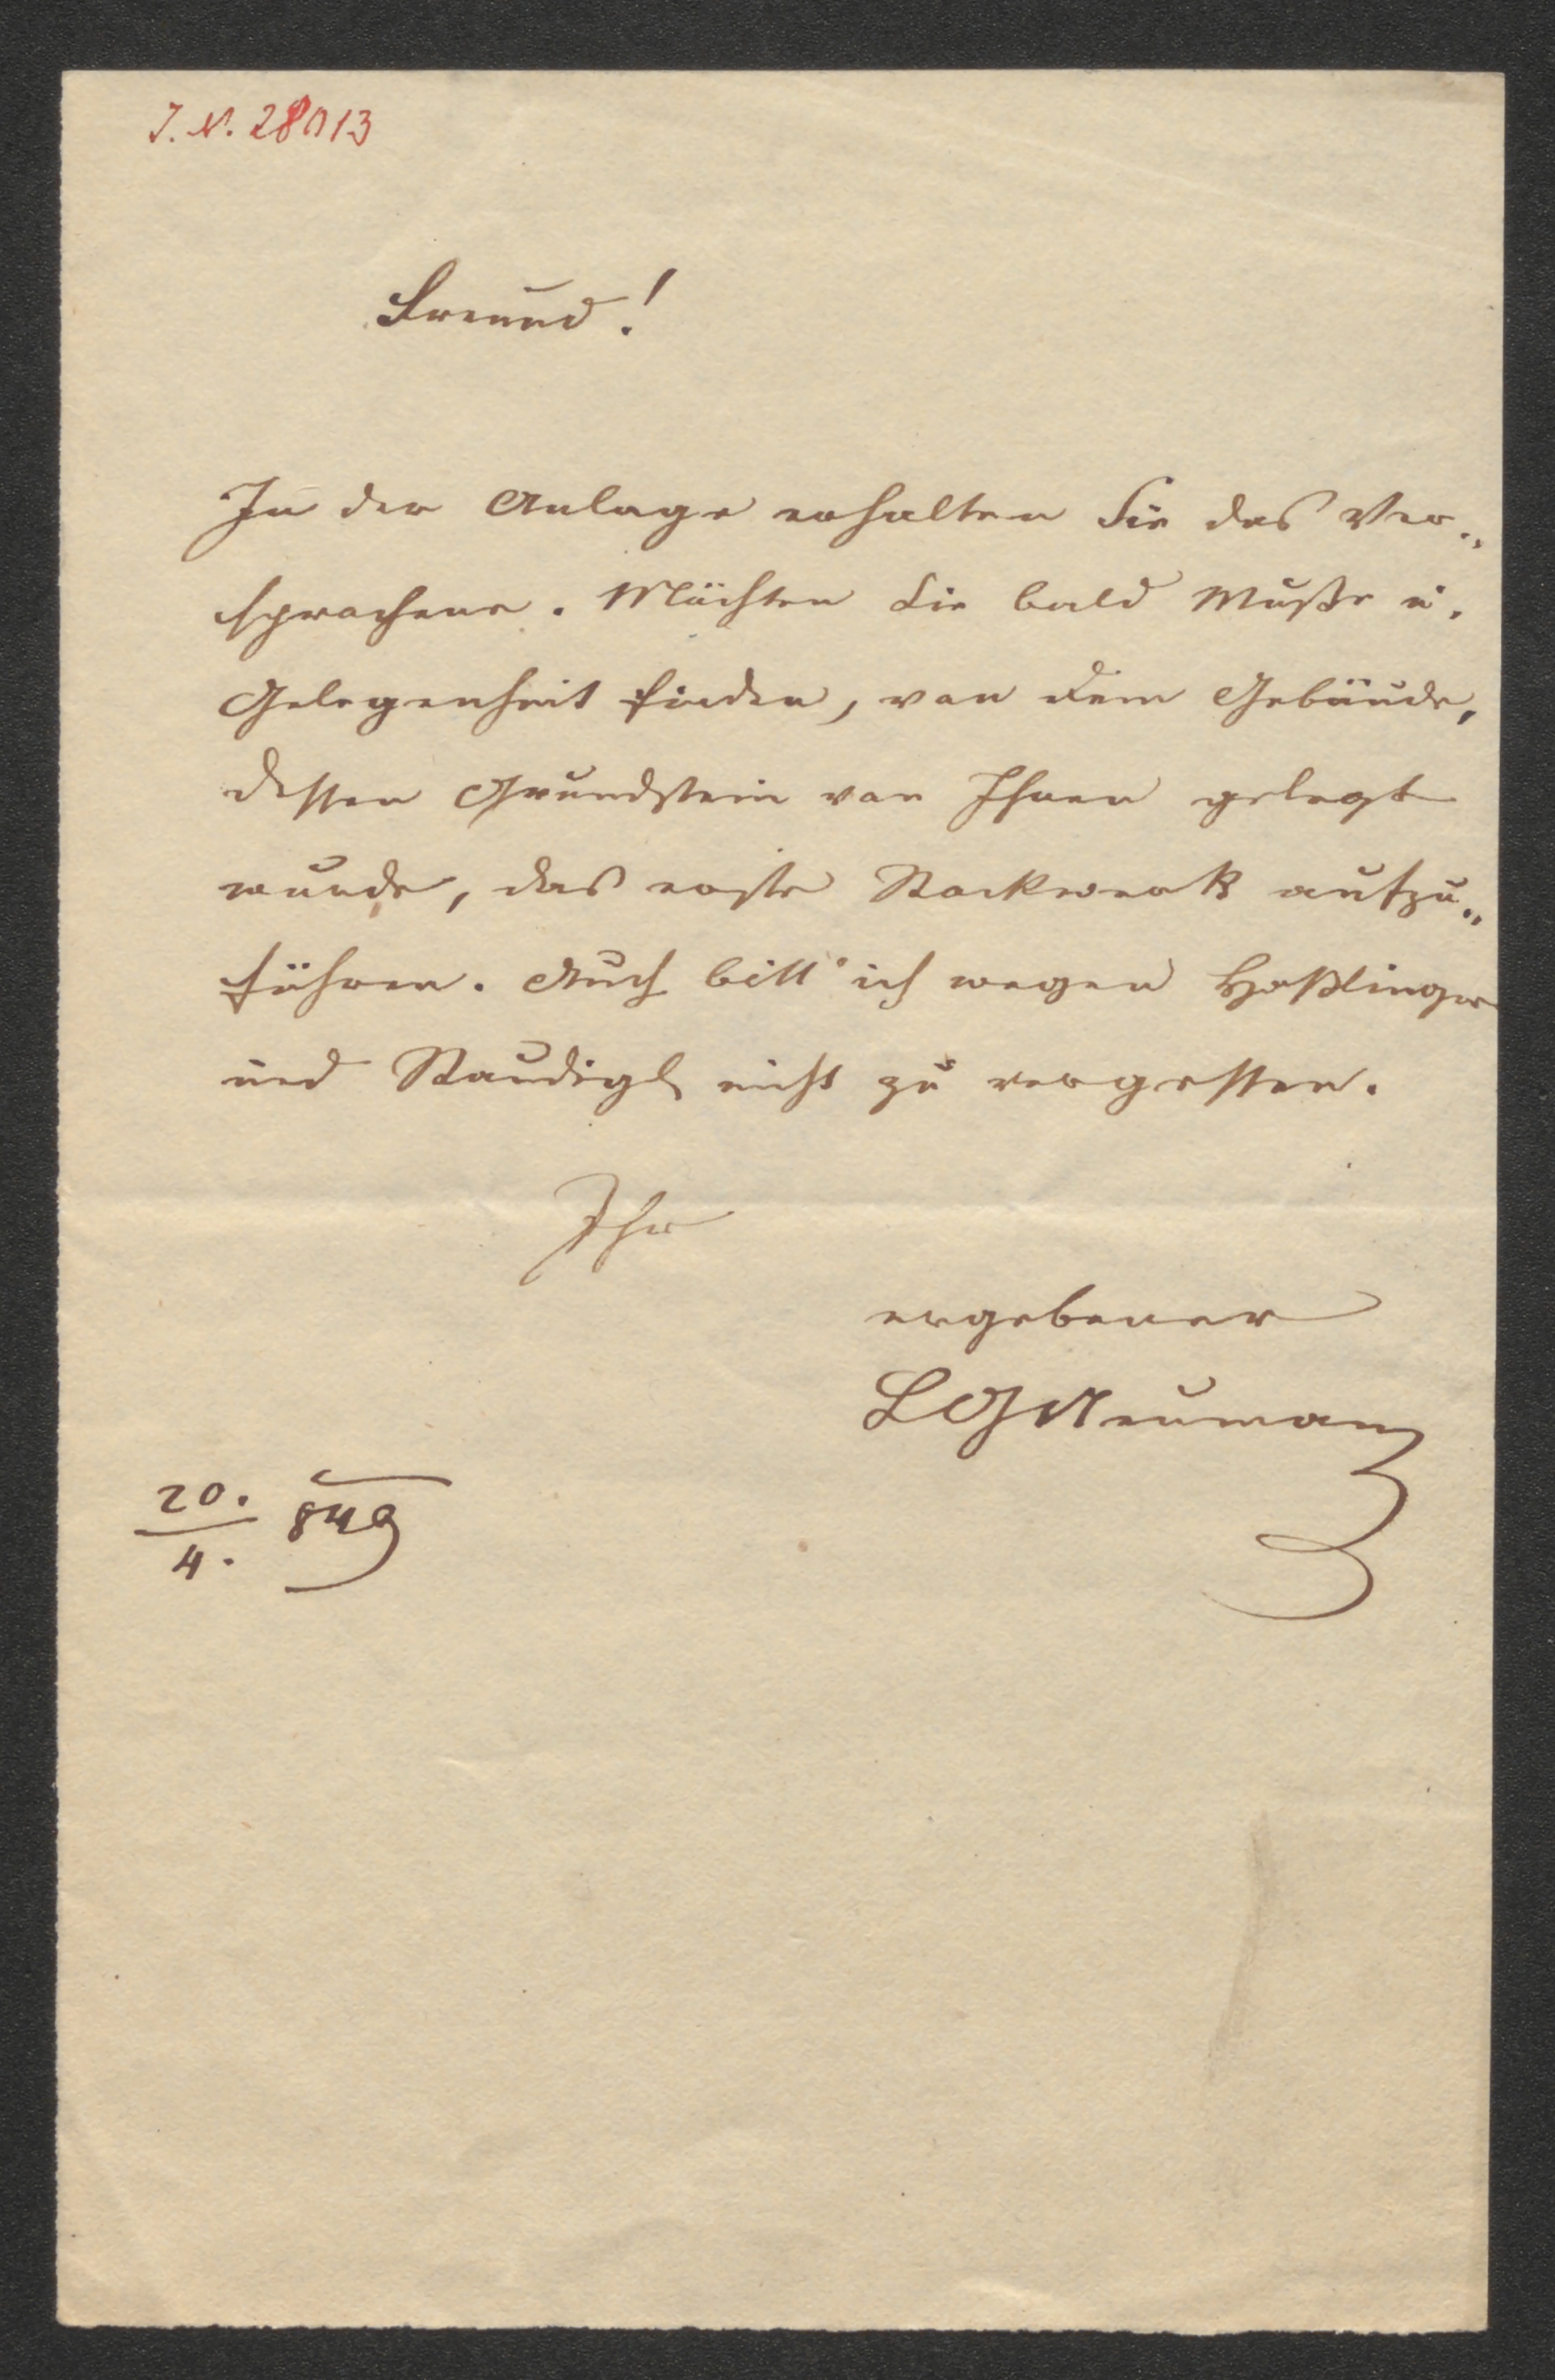 J. N. 28013
Freund!
In der Anlage erhalten Sie das Ver„
sprochene. Möchten Sie bald Muße u.
Gelegenheit finden, von dem Gebäude,
dessen Grundstein von Ihnen gelegt
wurde, das erste Stockwerk aufzu„
führen. Auch bitt' ich wegen Haßlinger
und Staudigl nicht zu vergessen.
Ihr
ergebener
LGNeumann
20./4. 849